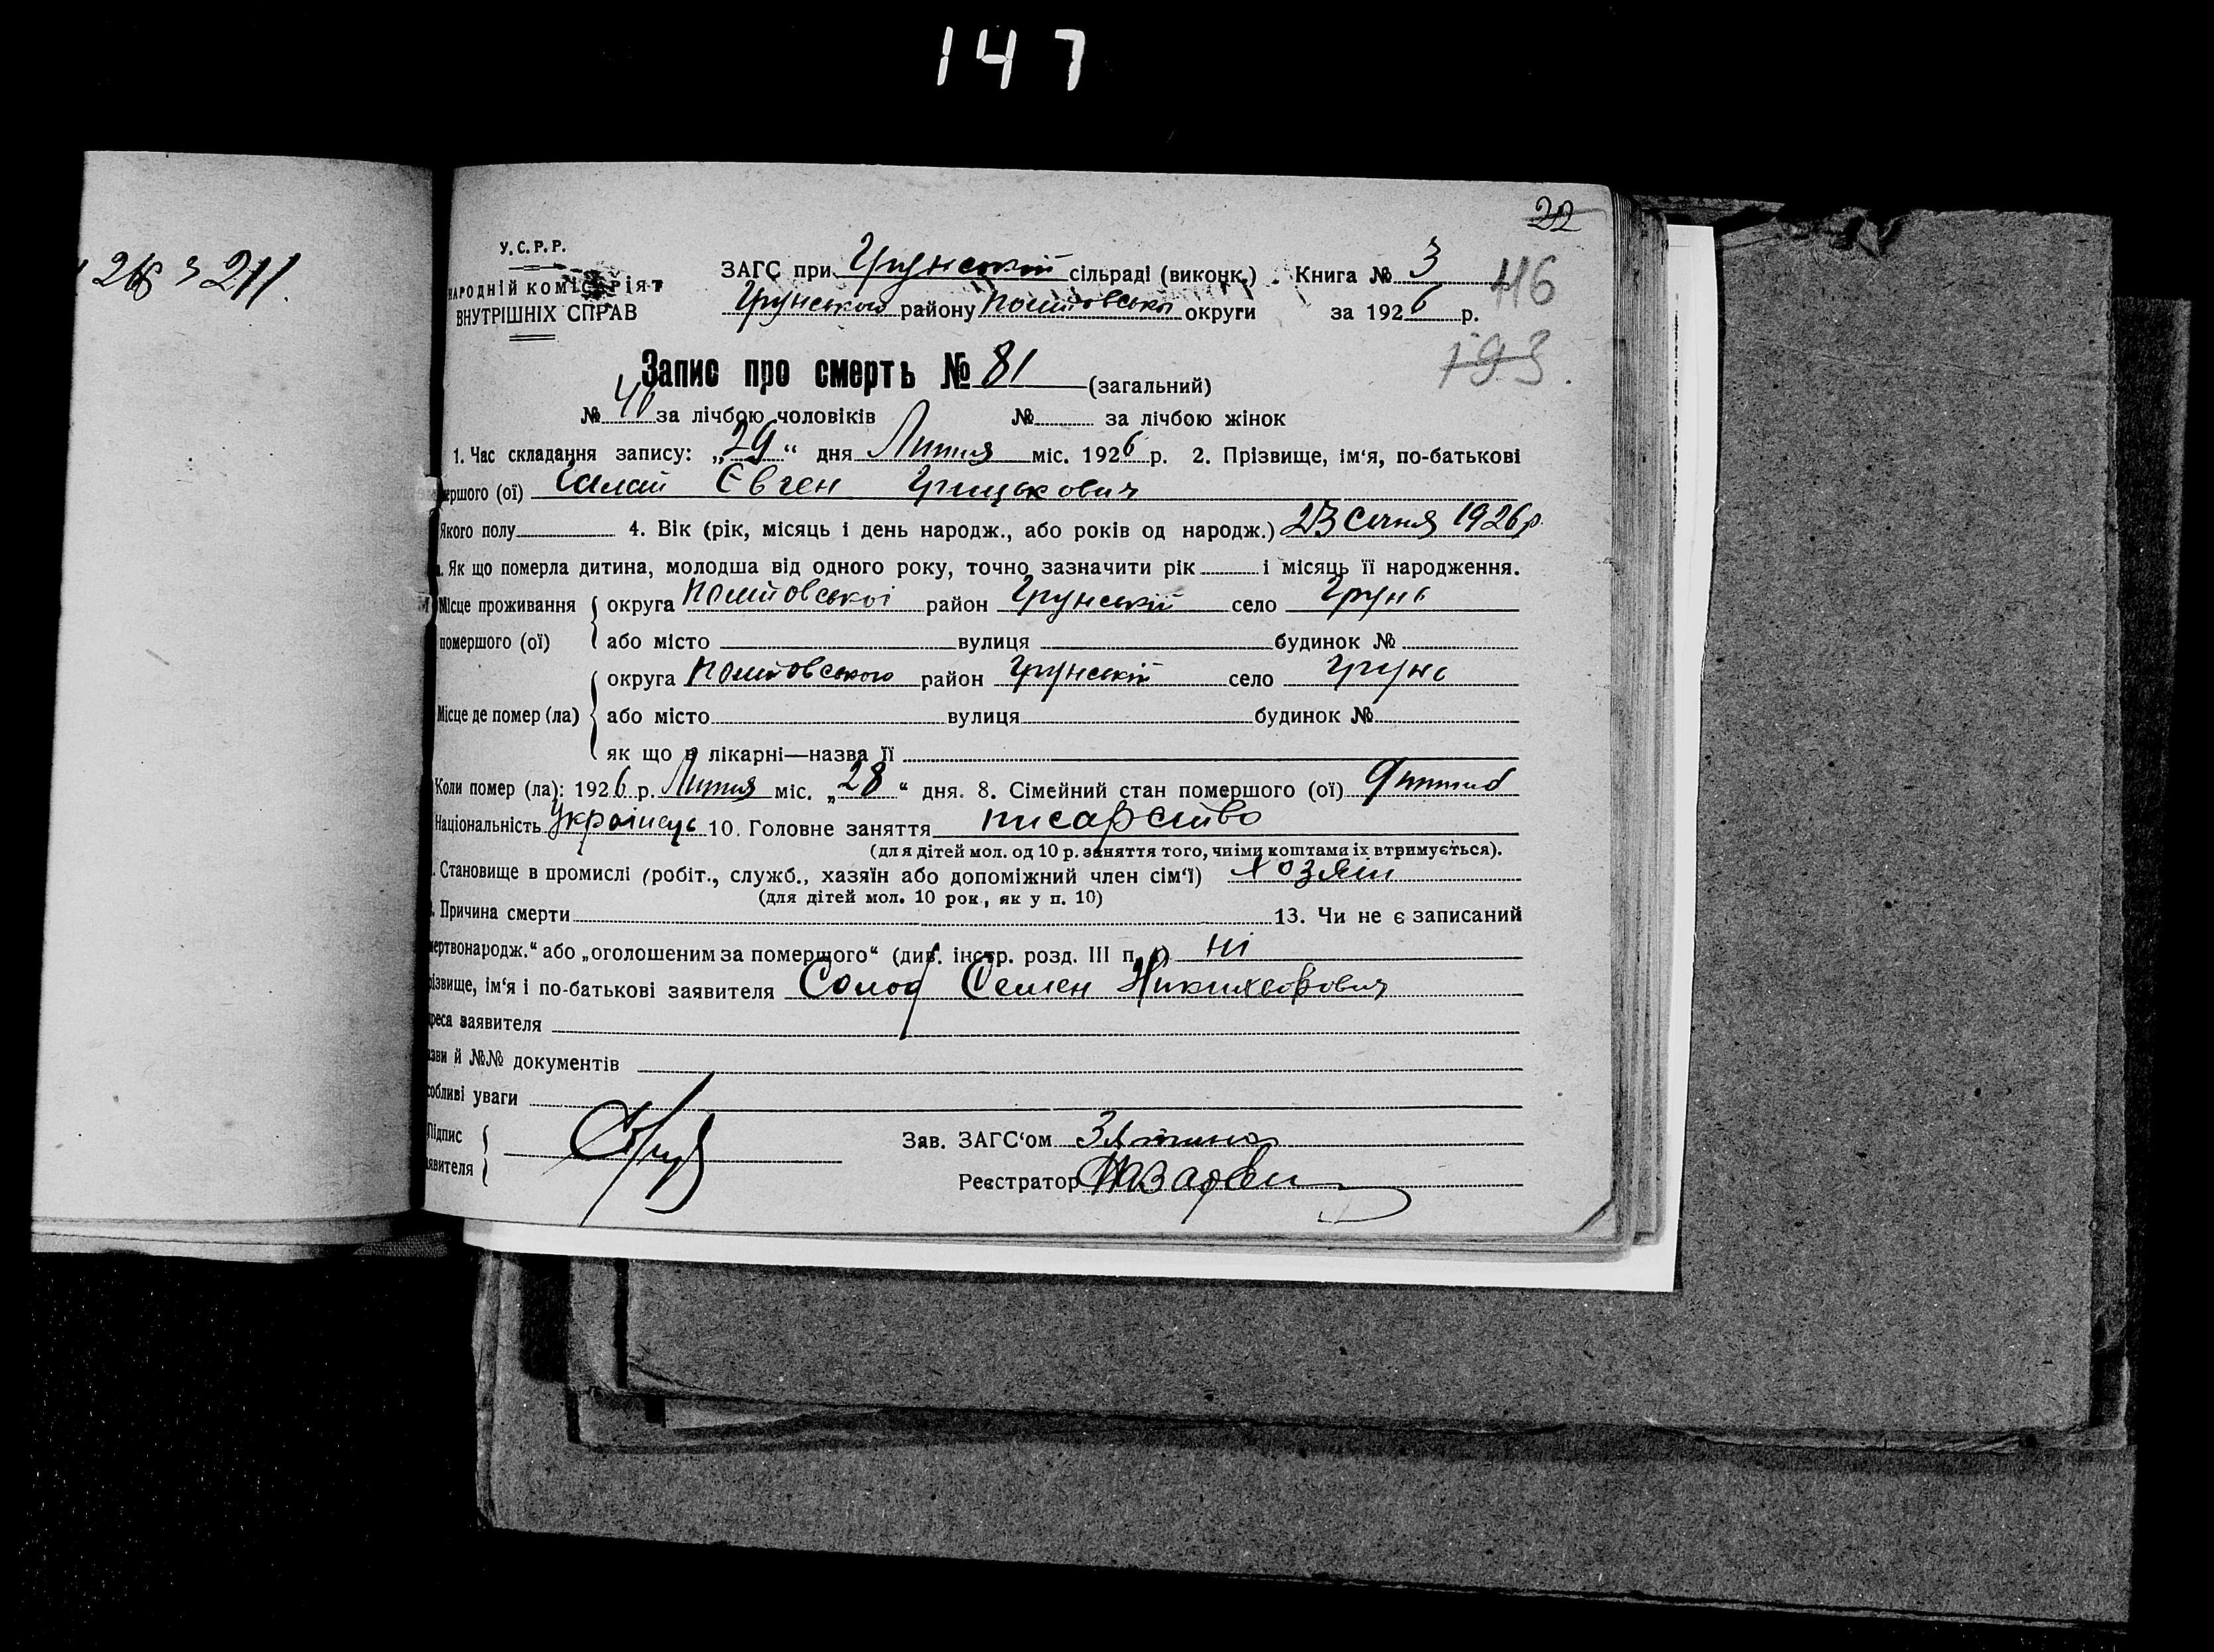 147
22
216 з 211.
У.С.Р.Р.
НАРОДНІЙ КОМІСАРІЯТ
ВНУТРІШНІХ СПРАВ
ЗАГС при Грунській сільраді (виконк.) Книга № 3
116
Грунського району Полтавської округи за 1926 р.
193.
Запис про смерть № 81 (загальний)
№ 40 за лічбою чоловіків № за лічбою жінок
1. Час складання запису: „29“ дня Липня міс. 1926 р. 2. Прізвище, ім‘я, по-батькові
мершого (ої) Євген Грицькович
Якого полу 4. Вік (рік, місяць і день народж., або років од народж.) 23 Січня 1926 р.
Як що померла дитина, молодша від одного року, точно зазначити рік і місяць її народження.
Місце проживання округа Полтовської район Грунський село Грунь
помершого (ої) або місто вулиця будинок №
округа Полтовського район Грунській село Грунь
Місце де помер (ла) або місто вулиця будинок №
як що в лікарні—назва її
Коли помер (ла): 1926 р. Липня міс. „28“ дня. 8. Сімейний стан помершого (ої)
Національність Українець 10. Головне заняття писарство
(для дітей мол. од 10 р. заняття того, чиїми коштами їх втримується).
. Становище в промислі (робіт., служб., хазяїн або допоміжний член сім‘ї) хозяїн
(для дітей мол. 10 рок., як у п. 10)
. Причина смерти 13. Чи не є записаний
мертвонародж.“ або „оголошеним за помершого“ (див. інстр. розд. III п. ) ні
різвище, ім‘я і по-батькові заявителя Солод Семен Никихворович
дреса заявителя
азви й №№ документів
собливі уваги
Підпис Зав. ЗАГС‘ом
аявителя Реєстратор